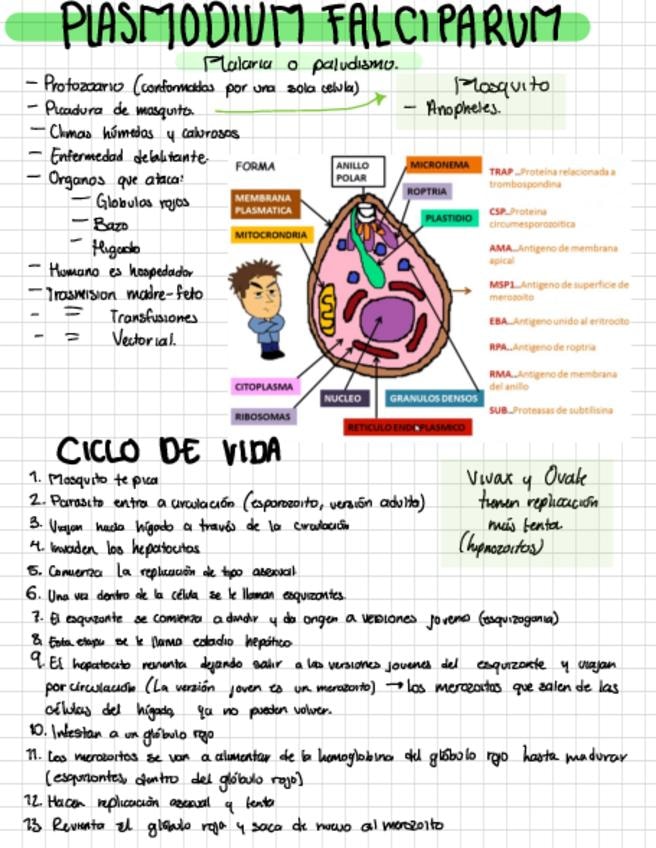 PLASMODIUM FALCIPARUM
Malaria o paludismo.
– Protozoario (conformados por una sola celula)
– Picadura de mosquito.
Mosquito
– Anopheles.
– Climas húmedos y calurosos
– Enfermedad debilitante.
– Organos que ataca:
– Globulos rojos
– Bazo
– Higado
– Humano es hospedador
– Trasmision madre-feto
- = Transfusiones
- = Vectorial.
FORMA
ANILLO POLAR
MICRONEMA
ROPTRIA
PLASTIDIO
MEMBRANA PLASMATICA
MITOCRONDRIA
CITOPLASMA
RIBOSOMAS
NUCLEO
GRANULOS DENSOS
RETICULO ENDOPLASMICO
TRAP..Proteína relacionada a
trombospondina
CSP..Proteina
circumesporozoitica
AMA..Antigeno de membrana
apical
MSP1..Antigeno de superficie de
merozoito
EBA..Antigeno unido al eritrocito
RPA..Antigeno de roptria
RMA..Antigeno de membrana
del anillo
SUB..Proteasas de subtilisina
CICLO DE VIDA
1. Mosquito te pica
2. Parasito entra a circulación (esporozoito, versión adulta)
3. Viajan hacia hígado a través de la circulación
4. Invaden los hepatocitos
5. Comienza la replicación de tipo asexual
6. Una vez dentro de la célula se le llaman esquizontes.
7. El esquizonte se comienza a dividir y da origen a versiones jovenes (esquizogonia)
8. Esta etapa se le llama estadio hepático
9. El hepatocito revienta dejando salir a las versiones jovenes del esquizonte y viajan
por circulación (La versión joven es un merozoito) → los merozoitos que salen de las
células del hígado, ya no pueden volver.
10. Infestan a un glóbulo rojo
11. Los merozoitos se van a alimentar de la hemoglobina del glóbulo rojo hasta madurar
(esquizontes, dentro del glóbulo rojo)
12. Hacen replicación asexual y lenta
13. Revienta el glóbulo rojo y saca de nuevo al merozoito
Vivax y Ovale
tienen replicación
más lenta.
(hipnozoitos)